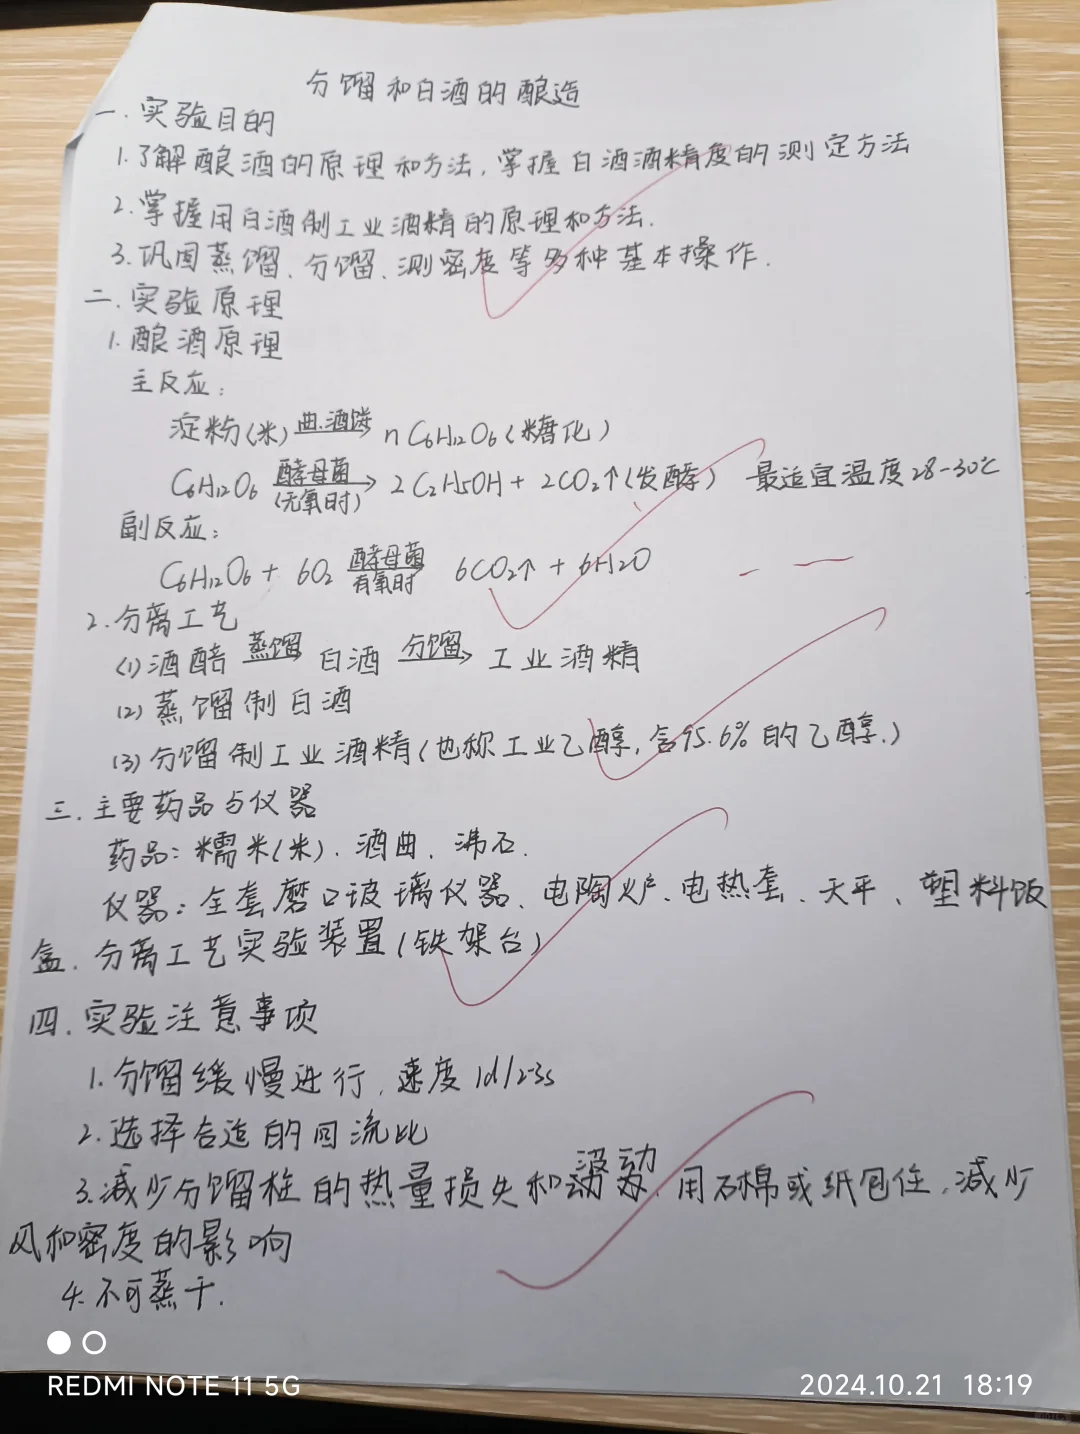 分馏和白酒的酿造
一.实验目的
1.了解酿酒的原理和方法,掌握白酒酒精度的测定方法
2.掌握用白酒制工业酒精的原理和方法.
3.巩固蒸馏、分馏、测密度等多种基本操作.
二.实验原理
1.酿酒原理
主反应:
淀粉(米) 曲.酒饼→ nC6H12O6(糖化)
C6H12O6 酵母菌(无氧时)→ 2C2H5OH+2CO2↑(发酵) 最适宜温度28-30℃
副反应:
C6H12O6+6O2 酵母菌有氧时→ 6CO2↑+6H2O
2.分离工艺
(1)酒醅 蒸馏→ 白酒 分馏→ 工业酒精
(2)蒸馏制白酒
(3)分馏制工业酒精(也称工业乙醇,含95.6%的乙醇.)
三.主要药品与仪器
药品:糯米(米).酒曲.沸石.
仪器:全套磨口玻璃仪器、电陶炉、电热套、天平、塑料饭
盒.分离工艺实验装置(铁架台)
四.实验注意事项
1.分馏缓慢进行,速度1d/2-3s
2.选择合适的回流比
3.减少分馏柱的热量损失和波动.用石棉或纸包住,减少
风和密度的影响
4.不可蒸干.
REDMI NOTE 11 5G
2024.10.21 18:19